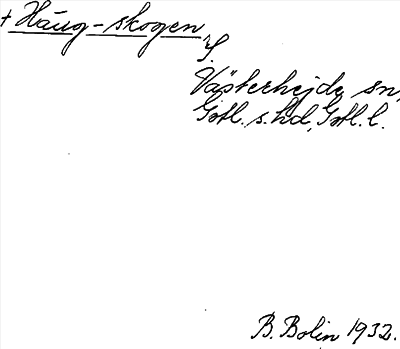 + Häug-skogen
S.
Västerhejde sn,
Gotl. s. hd, Gotl. l.
B. Bolin 1932.